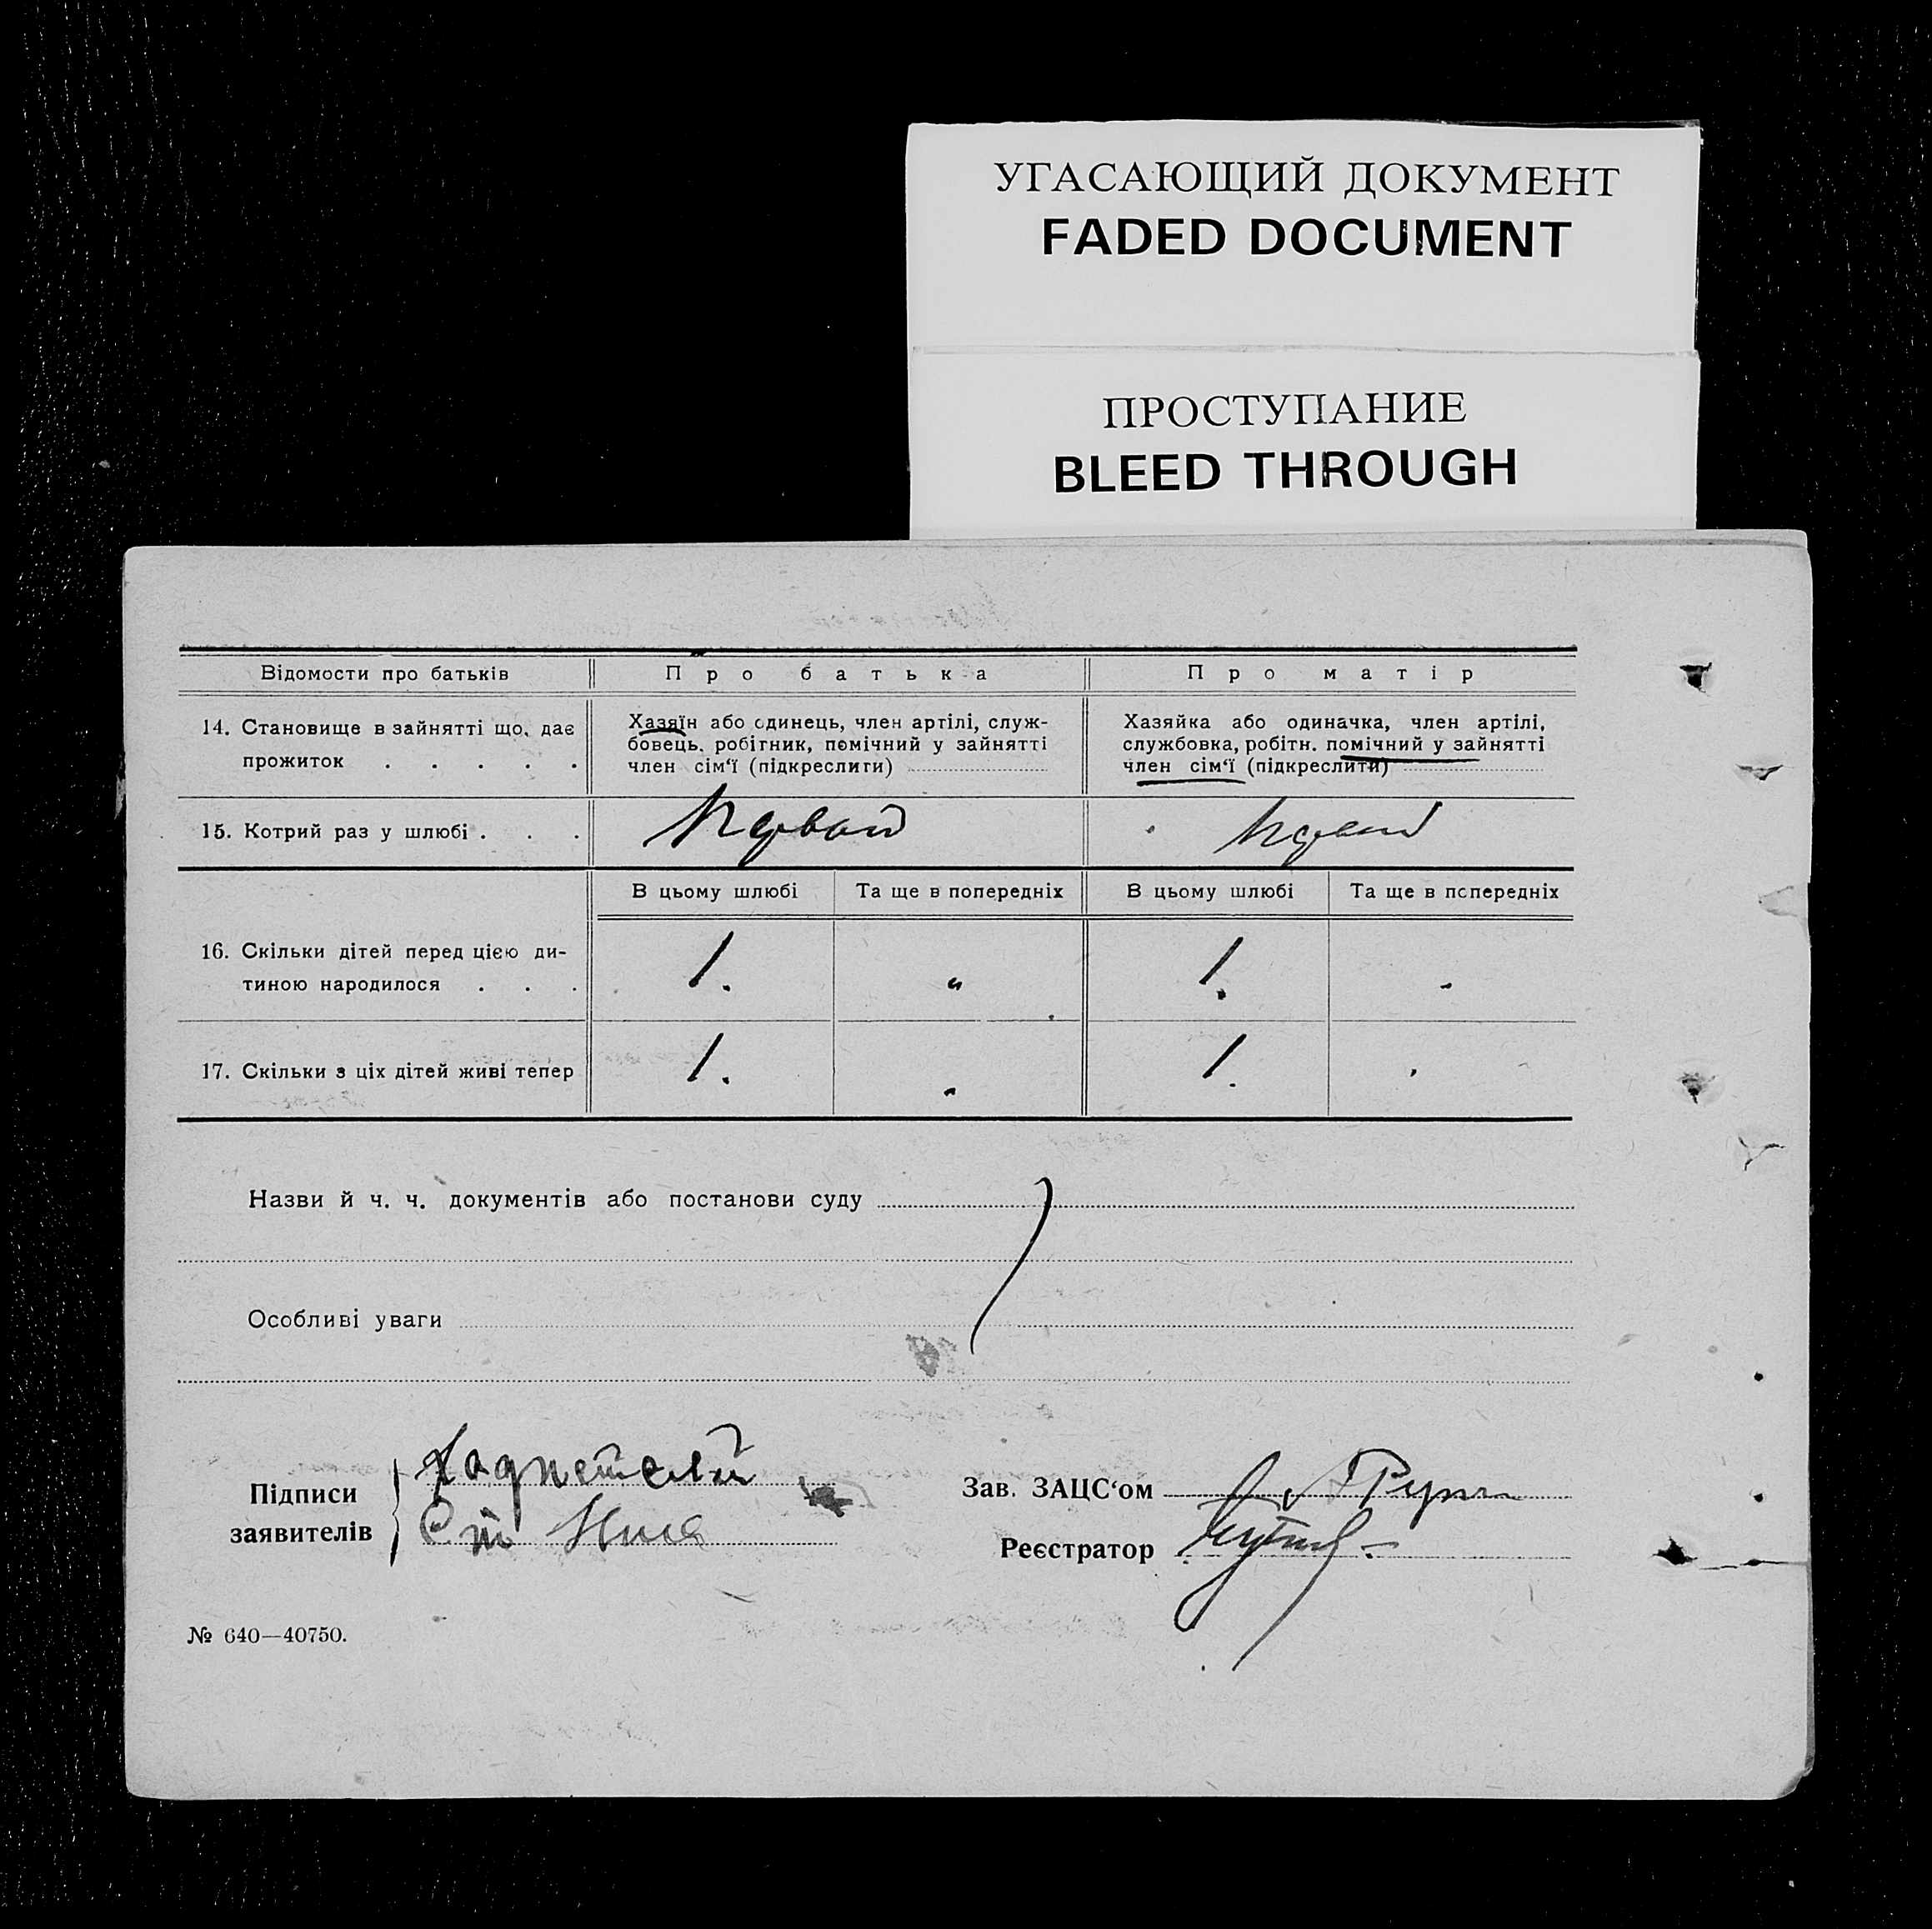 УГАСАЮЩИЙ ДОКУМЕНТ
FADED DOCUMENT
ПРОСТУПАНИЕ
BLEED THROUGH
Відомости про батьків
Про батька
Про матір
14. Становище в зайнятті що, дає
прожиток . . . . .
Хазяїн або одинець, член артілі, служ-
бовець, робітник, помічний у зайнятті
член сім‘ї (підкреслити)
Хазяйка або одиначка, член артілі,
службовка, робітн. помічний у зайнятті
член сім‘ї (підкреслити)
15. Котрий раз у шлюбі . . .
Первый
Первый
В цьому шлюбі
Та ще в попередніх
В цьому шлюбі
Та ще в попередніх
16. Скільки дітей перед цією ди-
тиною народилося . . .
1. „ 1. -
17. Скільки з ціх дітей живі тепер
1. „ 1.
Назви й ч. ч. документів або постанови суду
Особливі уваги
Підписи
заявителів
Зав. ЗАЦС‘ом
Реєстратор
№ 640—40750.